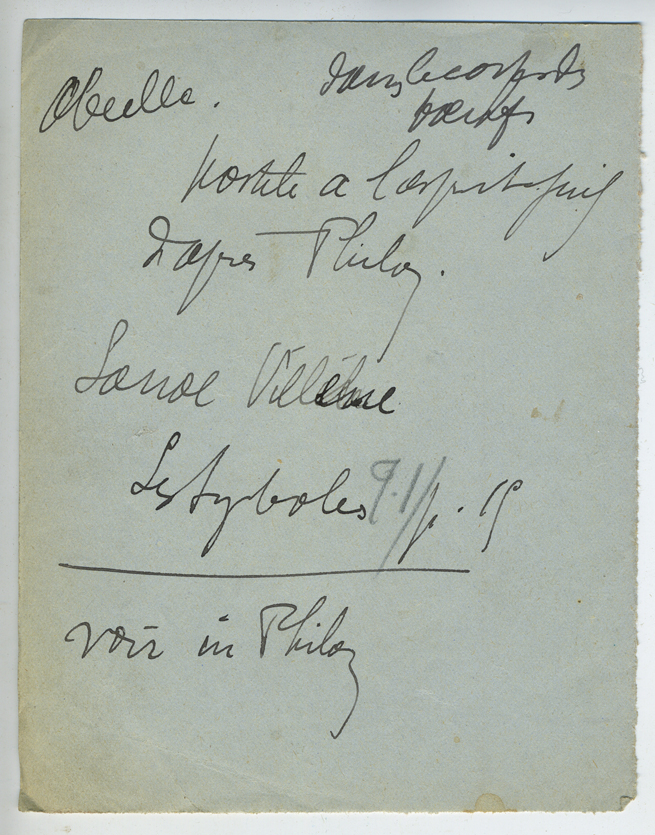 Abeille. dans le corps des
bœufs
hostile a l'esprit juif
D'après Philon.
Lanoe Villène
Les Symboles p. 15
voir in Philon